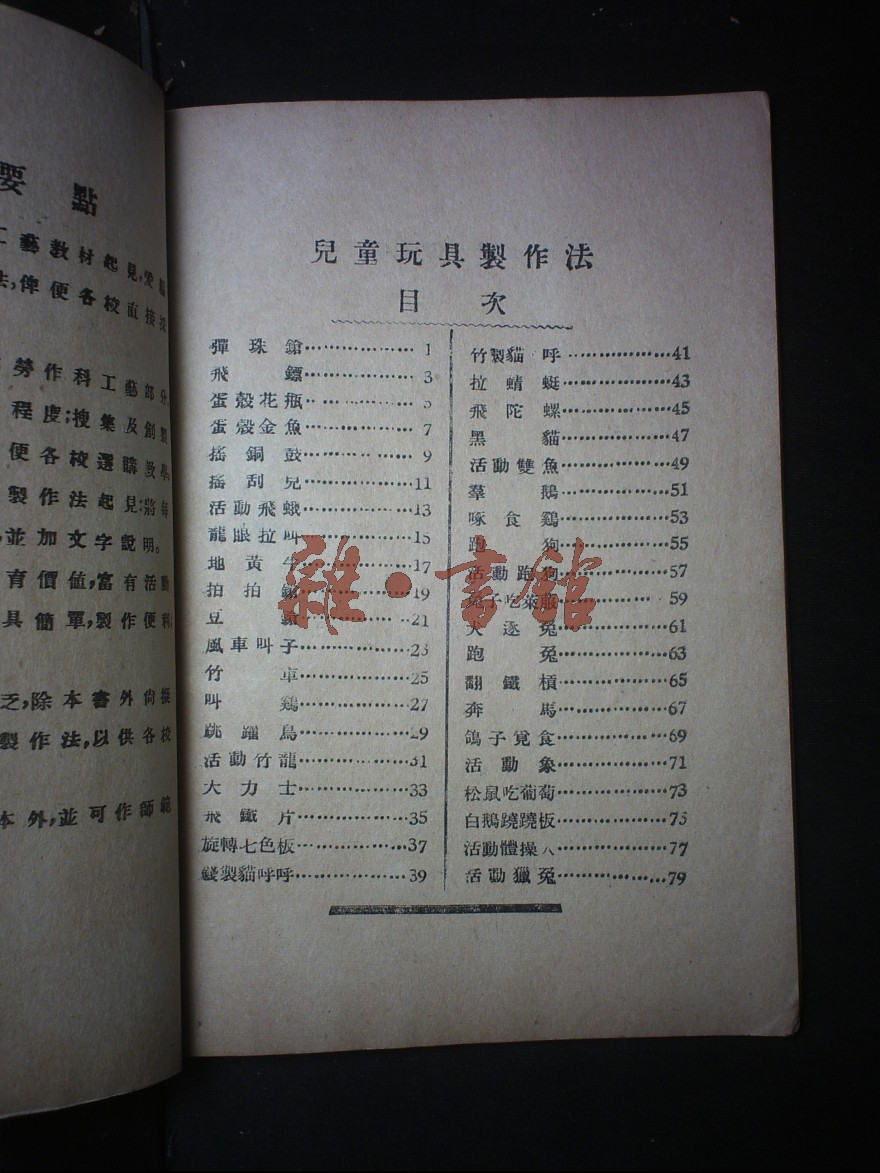 要點
工藝教材起見,爰編
法,俾便各校直接採
勞作科工藝部分
程度;搜集及創製
便各校選購教學
製作法起見;將每
,並加文字說明。
育價値,富有活動
具簡單,製作便利
乏,除本書外尙擬
製作法,以供各校
本外,並可作師範
兒童玩具製作法
目次
彈珠鎗………………1
飛鏢………………3
蛋殼花瓶………………5
蛋殼金魚………………7
搖銅鼓………………9
搖刮兒………………11
活動飛蛾………………13
龍眼拉叫………………15
地黃牛………………17
拍拍………………19
豆鎗………………21
風車叫子………………23
竹車………………25
叫鷄………………27
跳躍鳥………………29
活動竹龍………………31
大力士………………33
飛鐵片………………35
旋轉七色板………………37
綫製貓呼呼………………39
竹製貓呼………………41
拉蜻蜓………………43
飛陀螺………………45
黑貓………………47
活動雙魚………………49
羣鵝………………51
啄食鷄………………53
跑狗………………55
活動跑狗………………57
兔子吃萊菔………………59
犬逐兔………………61
跑兔………………63
翻鐵槓………………65
奔馬………………67
鴿子覓食………………69
活動象………………71
松鼠吃葡萄………………73
白鵝蹺蹺板………………75
活動體操人………………77
活動獵兔………………79
雜·書館